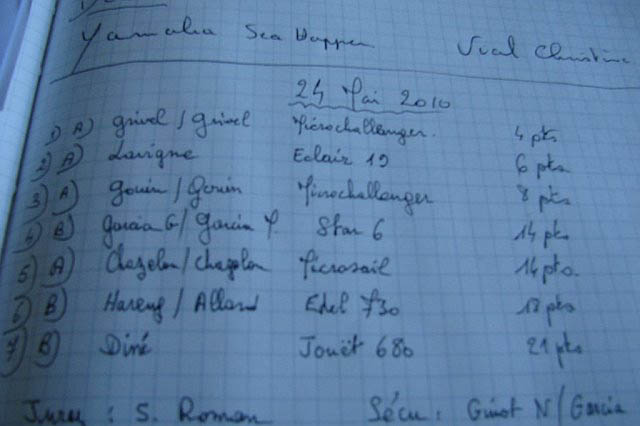 Yamaha Sea Happer Vial Christine
24 Mai 2010
1) A) Grivel / Grivel Microchallenger. 4 pts
2) A) Lavigne Eclair 19 6 pts
3) A) Gouin / Gouin Microchallenger 8 pts
4) B) Garcia G / Garcia Y Star 6 14 pts
5) A) Chazelon / Chazelon Microsail 14 pts.
6) B) Hareng / Allard Edel 730 18 pts
7) B) Diné Jouët 680 21 pts
Jury : S. Roman Sécu : Ginot N / Garcia